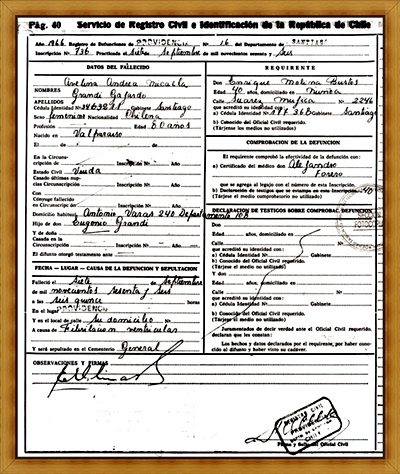 Pág. 40 Servicio de Registro Civil e Identificación de la República de Chile
Año 1966 Registro de Defunciones de PROVIDENCIA Nº 16 del Departamento de SANTIAGO
Inscripción Nº 736 Practicada el siete Septiembre de mil novecientos sesenta y seis
DATOS DEL FALLECIDO
Avelina Andrea Micaela
NOMBRES Grandi Gajardo
APELLIDOS
Cédula Identidad Nº Gabinete Santiago
Sexo femenino Nacionalidad Chilena
Profesión Edad 80 años
Nacido en Valparaíso
El de de
En la Circunscripción de Inscripción Nº Año
Estado Civil Viuda
Casado últimas nupcias Circunscripción Inscripción Nº Año
Con
Cónyuge fallecido
en Circunscripción Inscripción Nº Año
Domicilio habitual Antonio Varas 240 Departamento 10B
Hijo de don Eugenio Grandi
Y de doña
Casada en la
Circunscripción de Inscripción Nº Año
El difunto otorgó testamento ante
FECHA - LUGAR - CAUSA DE LA DEFUNCION Y SEPULTACION
Falleció el siete de septiembre
de mil novecientos sesenta y seis
a las seis quince horas
En el lugar PROVIDENCIA
Y en el local calle su domicilio Nº
A causa de Fibrilacion ventricular
Y será sepultado en el Cementerio General
REQUIRENTE
Don Enrique Molina Bustos
Edad 40 años, domiciliado en Ñuñoa
Calle Suarez Mujica Nº 2246
que acreditó su identidad con:
a) Cédula Identidad Nº Gabinete Santiago
b) Conocido del Oficial Civil requerido.
(Tárjese los medios no utilizados)
COMPROBACION DE LA DEFUNCION
El requirente comprobó la efectividad de la defunción con:
a) Certificado del médico don Alejandro
Forero
que se agrega al legajo con el número de esta Inscripción.
b) Declaración de testigos que se estampa en esta Inscripción.
(Tárjese el medio no utilizado)
DECLARACION DE TESTIGOS SOBRE COMPROBAC. DEFUNCION
Don
Edad años, domiciliado en
Calle Nº
que acreditó su identidad con:
a) Cédula Identidad Nº Gabinete
b) Conocido del Oficial Civil requerido.
(Tárjese el medio no utilizado)
Don
Edad años, domiciliado en
Calle Nº
que acreditó su identidad con:
a) Cédula Identidad Nº Gabinete
b) Conocido del Oficial Civil requerido.
(Tárjese el medio no utilizado)
Juramentados de decir verdad ante el Oficial Civil requerido, declaran que les constan:
Los hechos y datos declarados por el requirente; por haber conocido al difunto y haber visto su cadáver.
OBSERVACIONES Y FIRMAS
REGISTRO CIVIL
PROVIDENCIA
CHILE
Firma y Sello del Oficial Civil